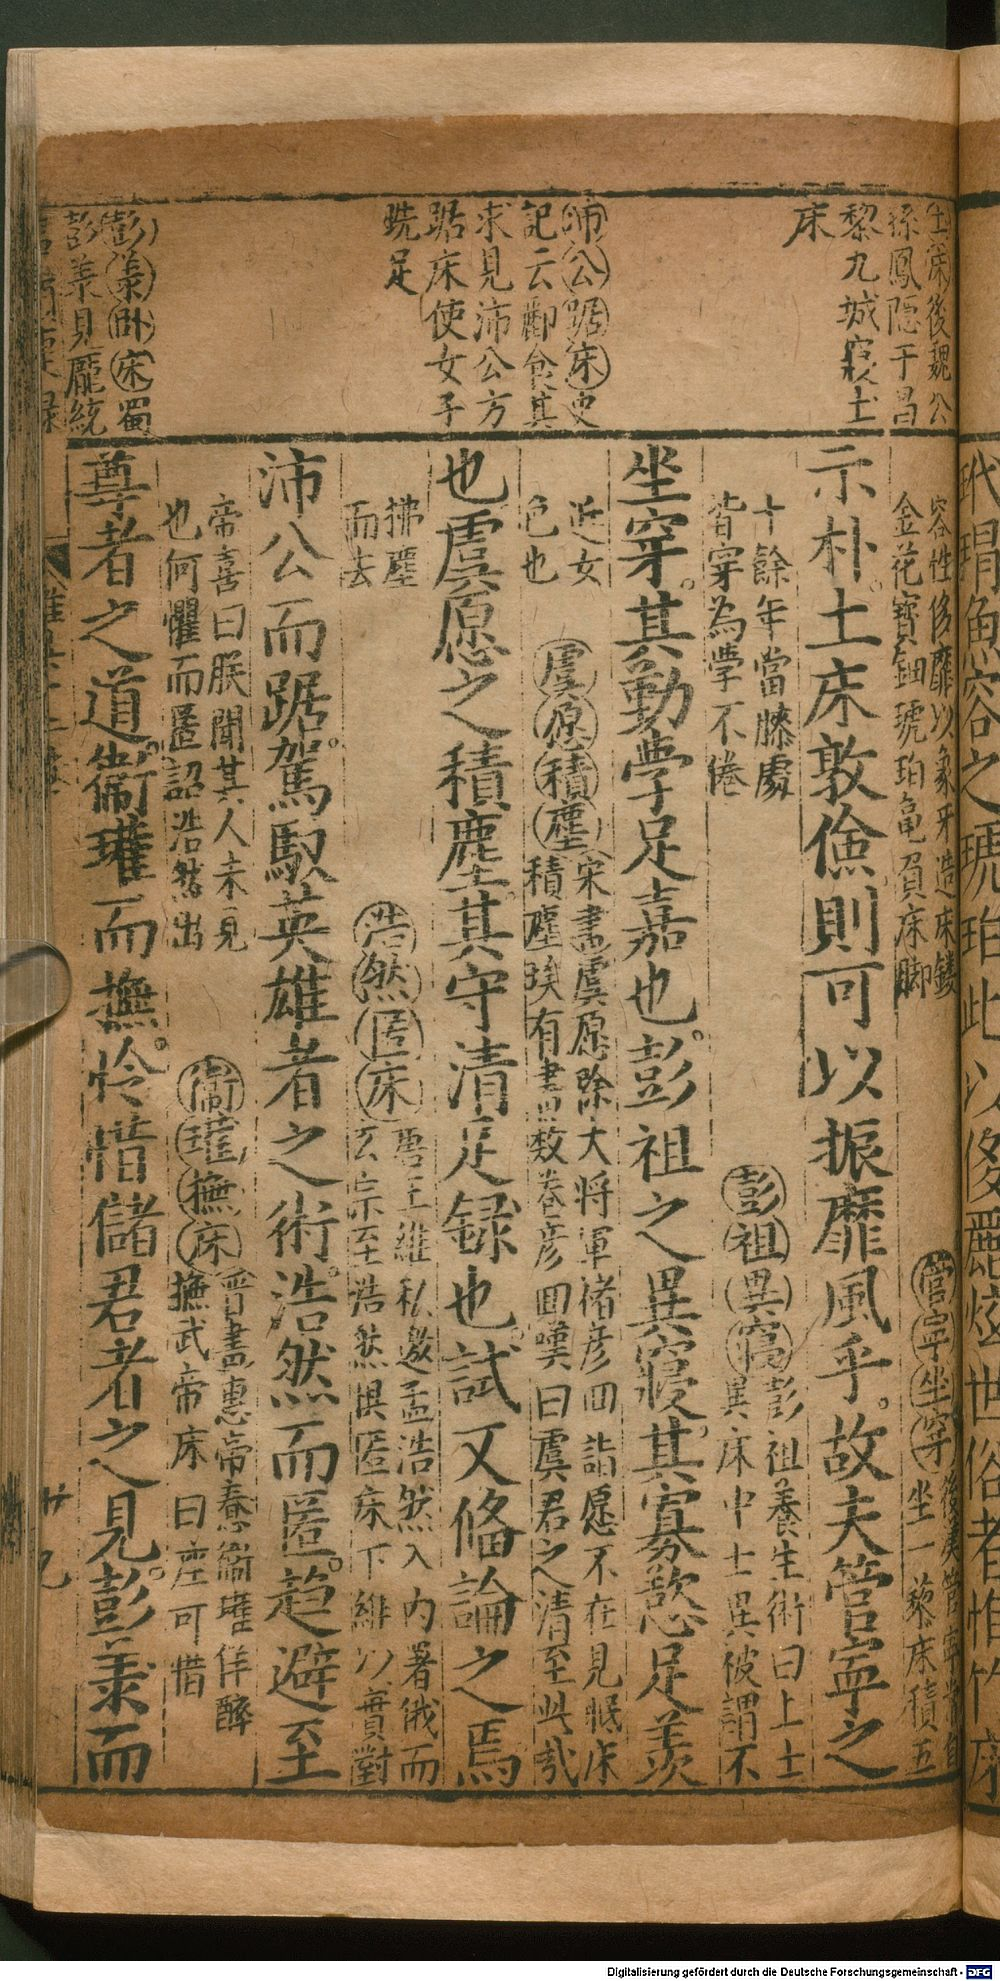 生滐後魏公
孫鳳隠于昌
黎九城寢土
床
沛公踞床史
記云酈食其
求見沛公方
踞床使女子
洗足
彭羕卧床蜀
彭羕見龐統
容性侈靡以象牙造床鏤
金花寶鈿琥珀亀負床脚
管寧坐穿後漢管寧常自
坐一藜床積五
示朴土床敦儉則可以振靡風乎故夫管寧之
十餘年當膝處
皆穿為學不倦
彭祖異寢彭祖養生術曰上士
異床中士異被謂不
坐穿其勤學足嘉也彭祖之異寢其寡慾足羨
近女
色也
虞愿積塵宋書虞愿除大將軍褚彦回詣愿不在見眠床
積塵埃有書數卷彦囬嘆曰虞君之清至此哉
也虞愿之積塵其守清足録也試又備論之焉
拂塵
而去
浩然匿床唐王維私邀孟浩然入内署俄而
玄宗至浩然惧匿床下維以實對
沛公而踞駕馭英雄者之術浩然而匿趋避至
帝喜曰朕聞其人未見
也何懼而匿詔浩然出
衞瓘撫床晋書惠帝憃衞瓘佯醉
撫武帝床曰座可惜
尊者之道衞瓘而撫怜惜儲君者之見彭羕而
廿九
代瑁角容之琥珀此以侈麗炫世俗者惟竹床
Digitalisierung gefördert durch die Deutsche Forschungsgemeinschaft - DFG